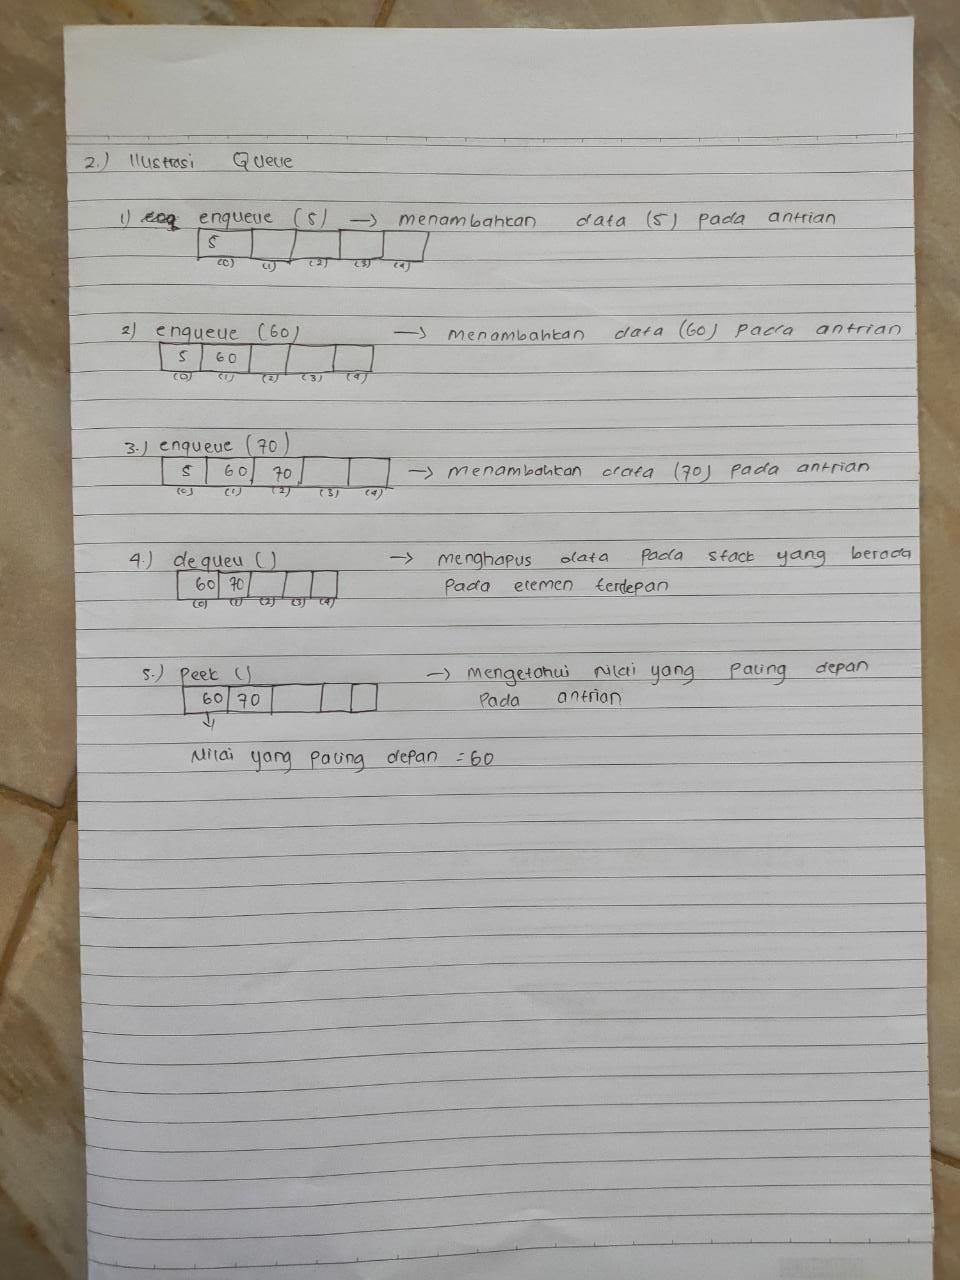 2.) Ilustrasi Queue
1) enqueue (5) → menambahkan data (5) pada antrian
5
(0) (1) (2) (3) (4)
2) enqueue (60) → menambahkan data (60) pada antrian
5 60
(0) (1) (2) (3) (4)
3.) enqueue (70)
5 60 70 → menambahkan data (70) pada antrian
(0) (1) (2) (3) (4)
4.) dequeu () → menghapus data pada stack yang berada
60 70 pada elemen terdepan
(0) (1) (2) (3) (4)
5.) Peek () → mengetahui nilai yang paling depan
60 70 pada antrian
Nilai yang paling depan = 60